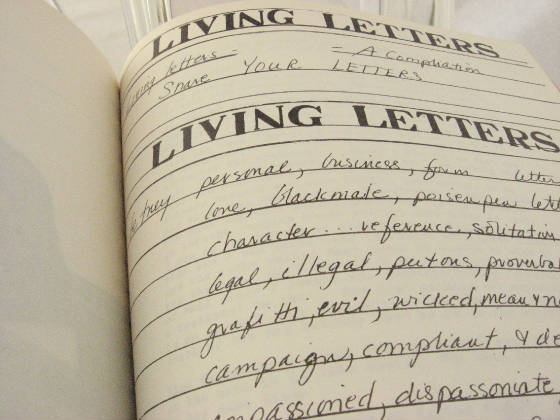 LIVING LETTERS
Living letters - = A Compliation
Share YOUR LETTERS
LIVING LETTERS
they personal, business, form letter
love, blackmale, poisen pen
character... reference, solitation
legal, illegal, putons, proverbal
grafitti, evil, wicked, mean &
campaign, compliant, &
impassioned, dispassoniate